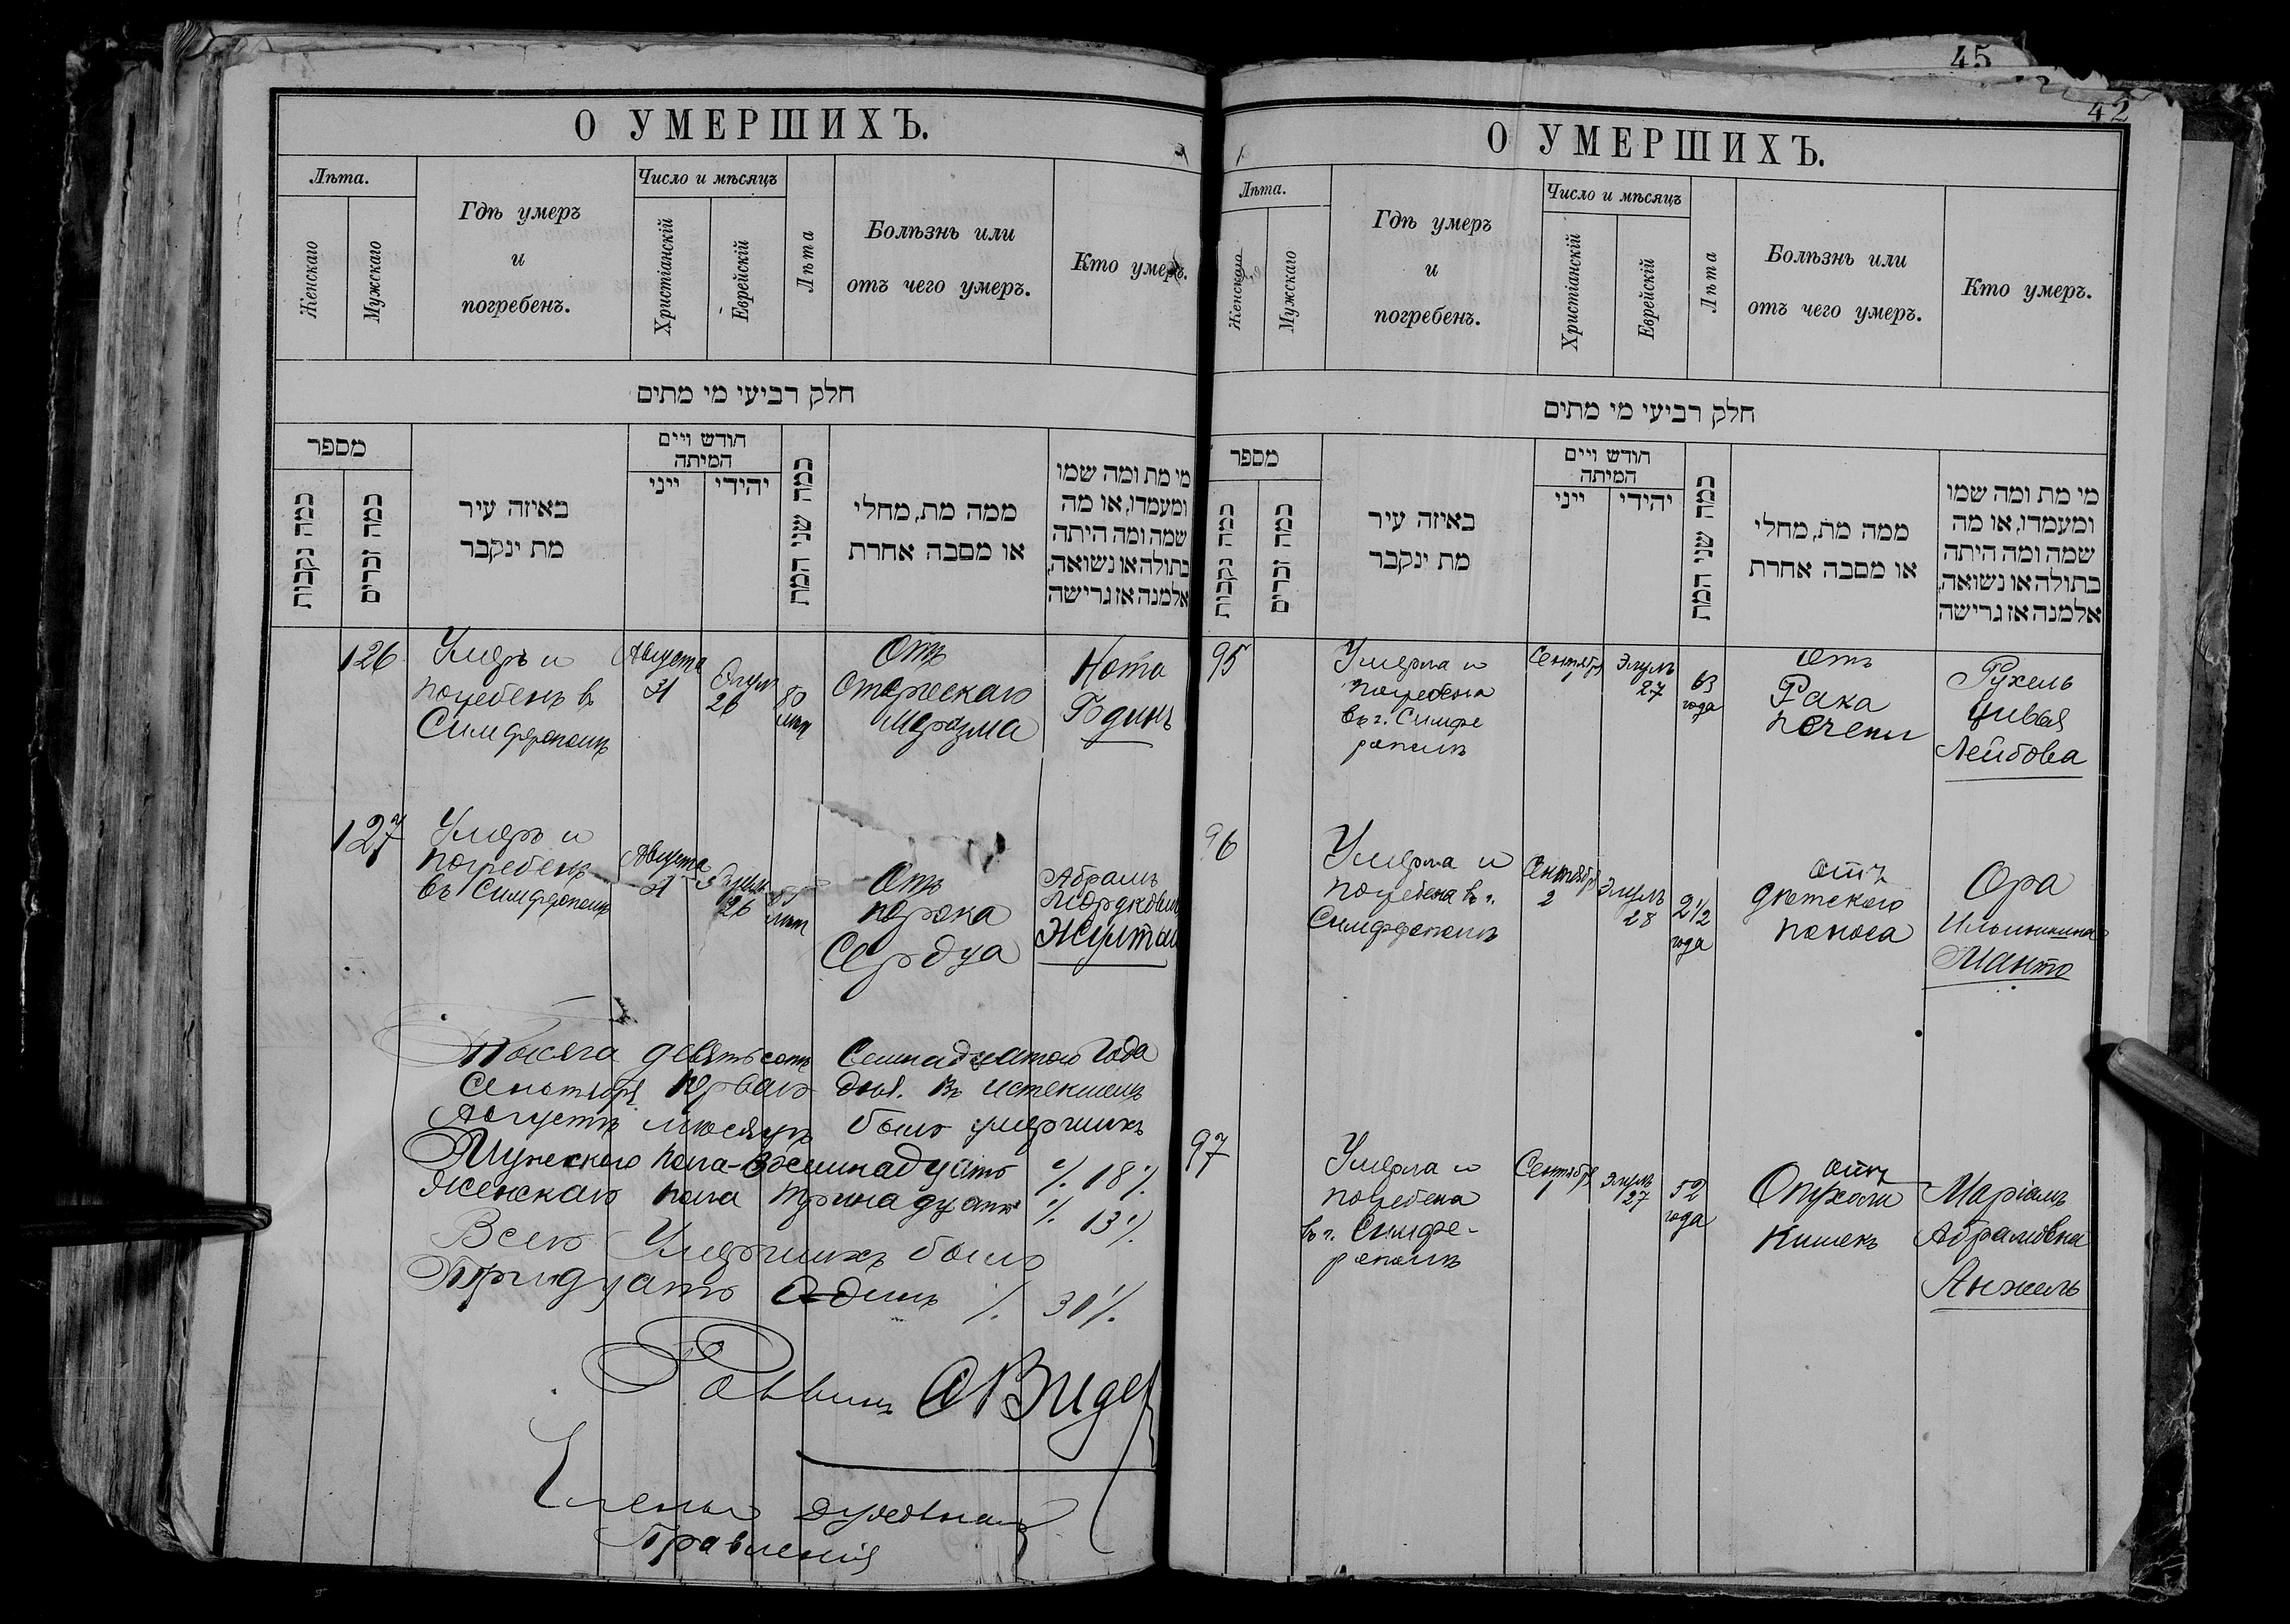 45
42
О УМЕРШИХЪ.
Лѣта.
Женскаго
Мужскаго
Гдѣ умеръ
и
погребенъ.
Число и мѣсяцъ
Христіанскій
Еврейскій
Лѣта
Болѣзнь или
отъ чего умеръ.
Кто умеръ.
חלק רביעי מי מתים
מספר
כמה נקבות
כמה זכרים
באיזה עיר
מת ינקבר
חודש ויים
המיתה
ייני
יהידי
כמה שני המת
ממה מת, מחלי
או מסבה אחרת
מי מת ומה שמו
ומעמדו, או מה
שמה ומה היתה
בתולה או נשואה,
אלמנה אז גרישה
126
Умеръ и
погребенъ в
Симферополѣ
Августа
31
Элул
26
80
лѣт
Отъ
Старческаго
Маразма
Нота
Бдинъ
127
Умеръ и
погребенъ
въ Симферополѣ
Августа
31
Элулъ
26
лѣт
Отъ
порока
Сердца
Абрамъ
Мордковичъ
Тысяча девятьсотъ Семнадцатого Года
Сентября перваго дня. Въ истекшемъ
Августѣ мѣсяцѣ было умершихъ
Мужского пола - Восемнадцать % 18 %
Женскаго пола тринадцать % 13 %
Всего Умершихъ было
Тридцать Одинъ /. 31 %.
Раввинъ
Члены духовнаго
Правленія
О УМЕРШИХЪ.
Лѣта.
Женскаго
Мужскаго
Гдѣ умеръ
и
погребенъ.
Число и мѣсяцъ
Христіанскій
Еврейскій
Лѣта
Болѣзнь или
отъ чего умеръ.
Кто умеръ.
חלק רביעי מי מתים
מספר
כמה נקבות
כמה זכרים
באיזה עיר
מת ינקבר
חודש ויים
המיתה
ייני
יהידי
כמה שני המת
ממה מת, מחלי
או מסבה אחרת
מי מת ומה שמו
ומעמדו, או מה
שמה ומה היתה
בתולה או נשואה,
אלמנה אז גרישה
95
Умерла и
погребена
въ г. Симфе
рополѣ
Сентября
1
Элулъ
27
63
года
отъ
Рака
печени
Рухель
Цивья
Лейбова
96
Умерла и
погребена въ г.
Симферополѣ
Сентября
2
Элулъ
28
2 1/2
года
отъ
дѣтского
поноса
Ора
Ильинична
Манто
97
Умерла и
погребена
въ г. Симфе-
рополѣ
Сентября
1
Элулъ
27
52
года
отъ
Опухоли
Кишекъ
Маріамъ
Абрамовна
Анжель